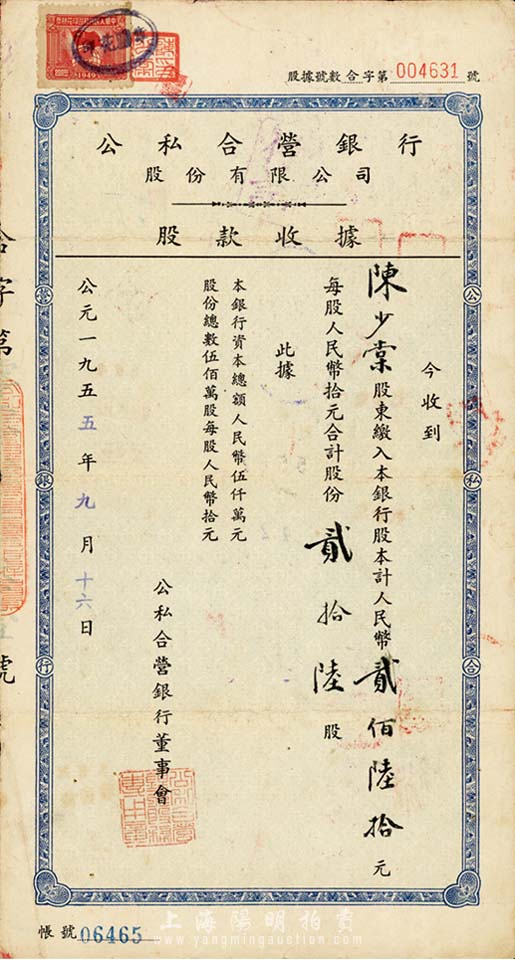 1949
股據號數合字第004631號
公私合營銀行
股份有限公司
股款收據
今收到
陳少棠股東繳入本銀行股本計人民幣貳佰陸拾元
每股人民幣拾元合計股份貳拾陸股
此據
本銀行資本總額人民幣伍仟萬元
股份總數伍佰萬股每股人民幣拾元
公私合營銀行董事會
公元一九五五年九月十六日
合字第
號
公
私
合
營
銀
行
帳號06465
上海陽明拍賣
www.yangmingauction.com